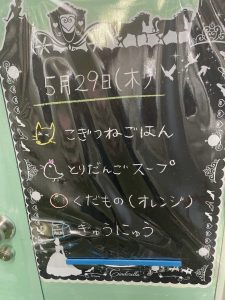 5月29日(木)
こぎつねごはん
とりだんごスープ
くだもの(オレンジ)
ぎゅうにゅう
Cinderella